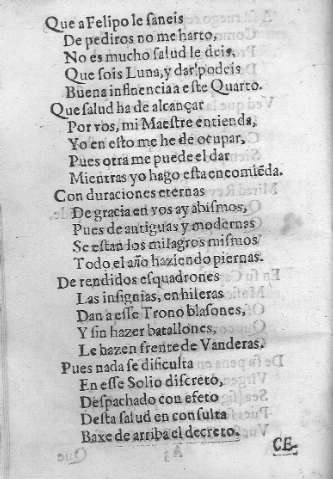 Que a Felipo le saneis
De pediros no me harto,
No es mucho salud le deis,
Que sois Luna, y dar podeis
Buena influencia a este Quarto.
Que salud ha de alcançar
Por vos, mi Maestre entienda,
Yo en esto me he de ocupar,
Pues otra me puede el dar
Mientras yo hago esta encomiẽda.
Con duraciones eternas
De gracia en vos ay abismos,
Pues de antiguas y modernas
Se estan los milagros mismos
Todo el año haziendo piernas.
De rendidos esquadrones
Las insignias, en hileras
Dan a esse Trono blasones,
Y sin hazer batallones,
Le hazen frente de Vanderas.
Pues nada se dificulta
En esse Solio discreto,
Despachado con efeto
Desta salud en consulta
Baxe de arriba el decreto.
CE-